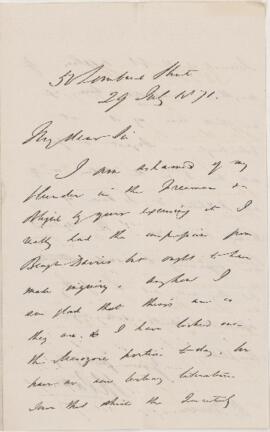 50 Lombard Street
29 July 1871.
My dear Sir
I am ashamed of my
blunder in the Freeman &
Wright & your excusing it I
really had the impression from
Davies but ought to have
made inquiry. Anyhow I
am glad that things are as
they are. I have looked over
the portion to-day. We
have no literature
than that which the Quarterly